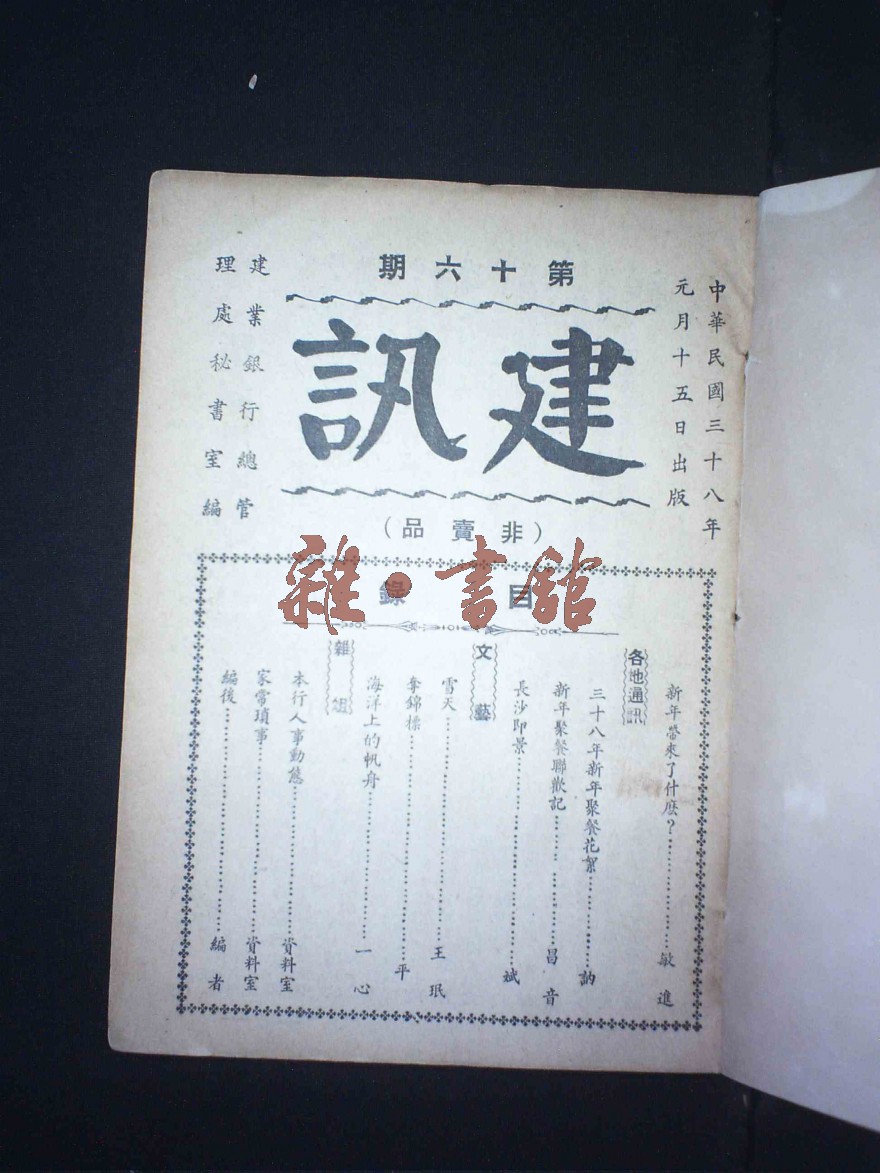 中華民國三十八年
元月十五日出版
第十六期
建訊
(非賣品)
建業銀行總管
理處秘書室編
目錄
新年帶來了什麽?敏進
各地通訊
三十八年新年聚餐花絮訥
新年聚餐聯歡記昌音
長沙即景斌
文藝
雪天王珉
奪錦標平
海洋上的帆舟一心
雜俎
本行人事動態資料室
家常瑣事資料室
編後編者
雜·書館